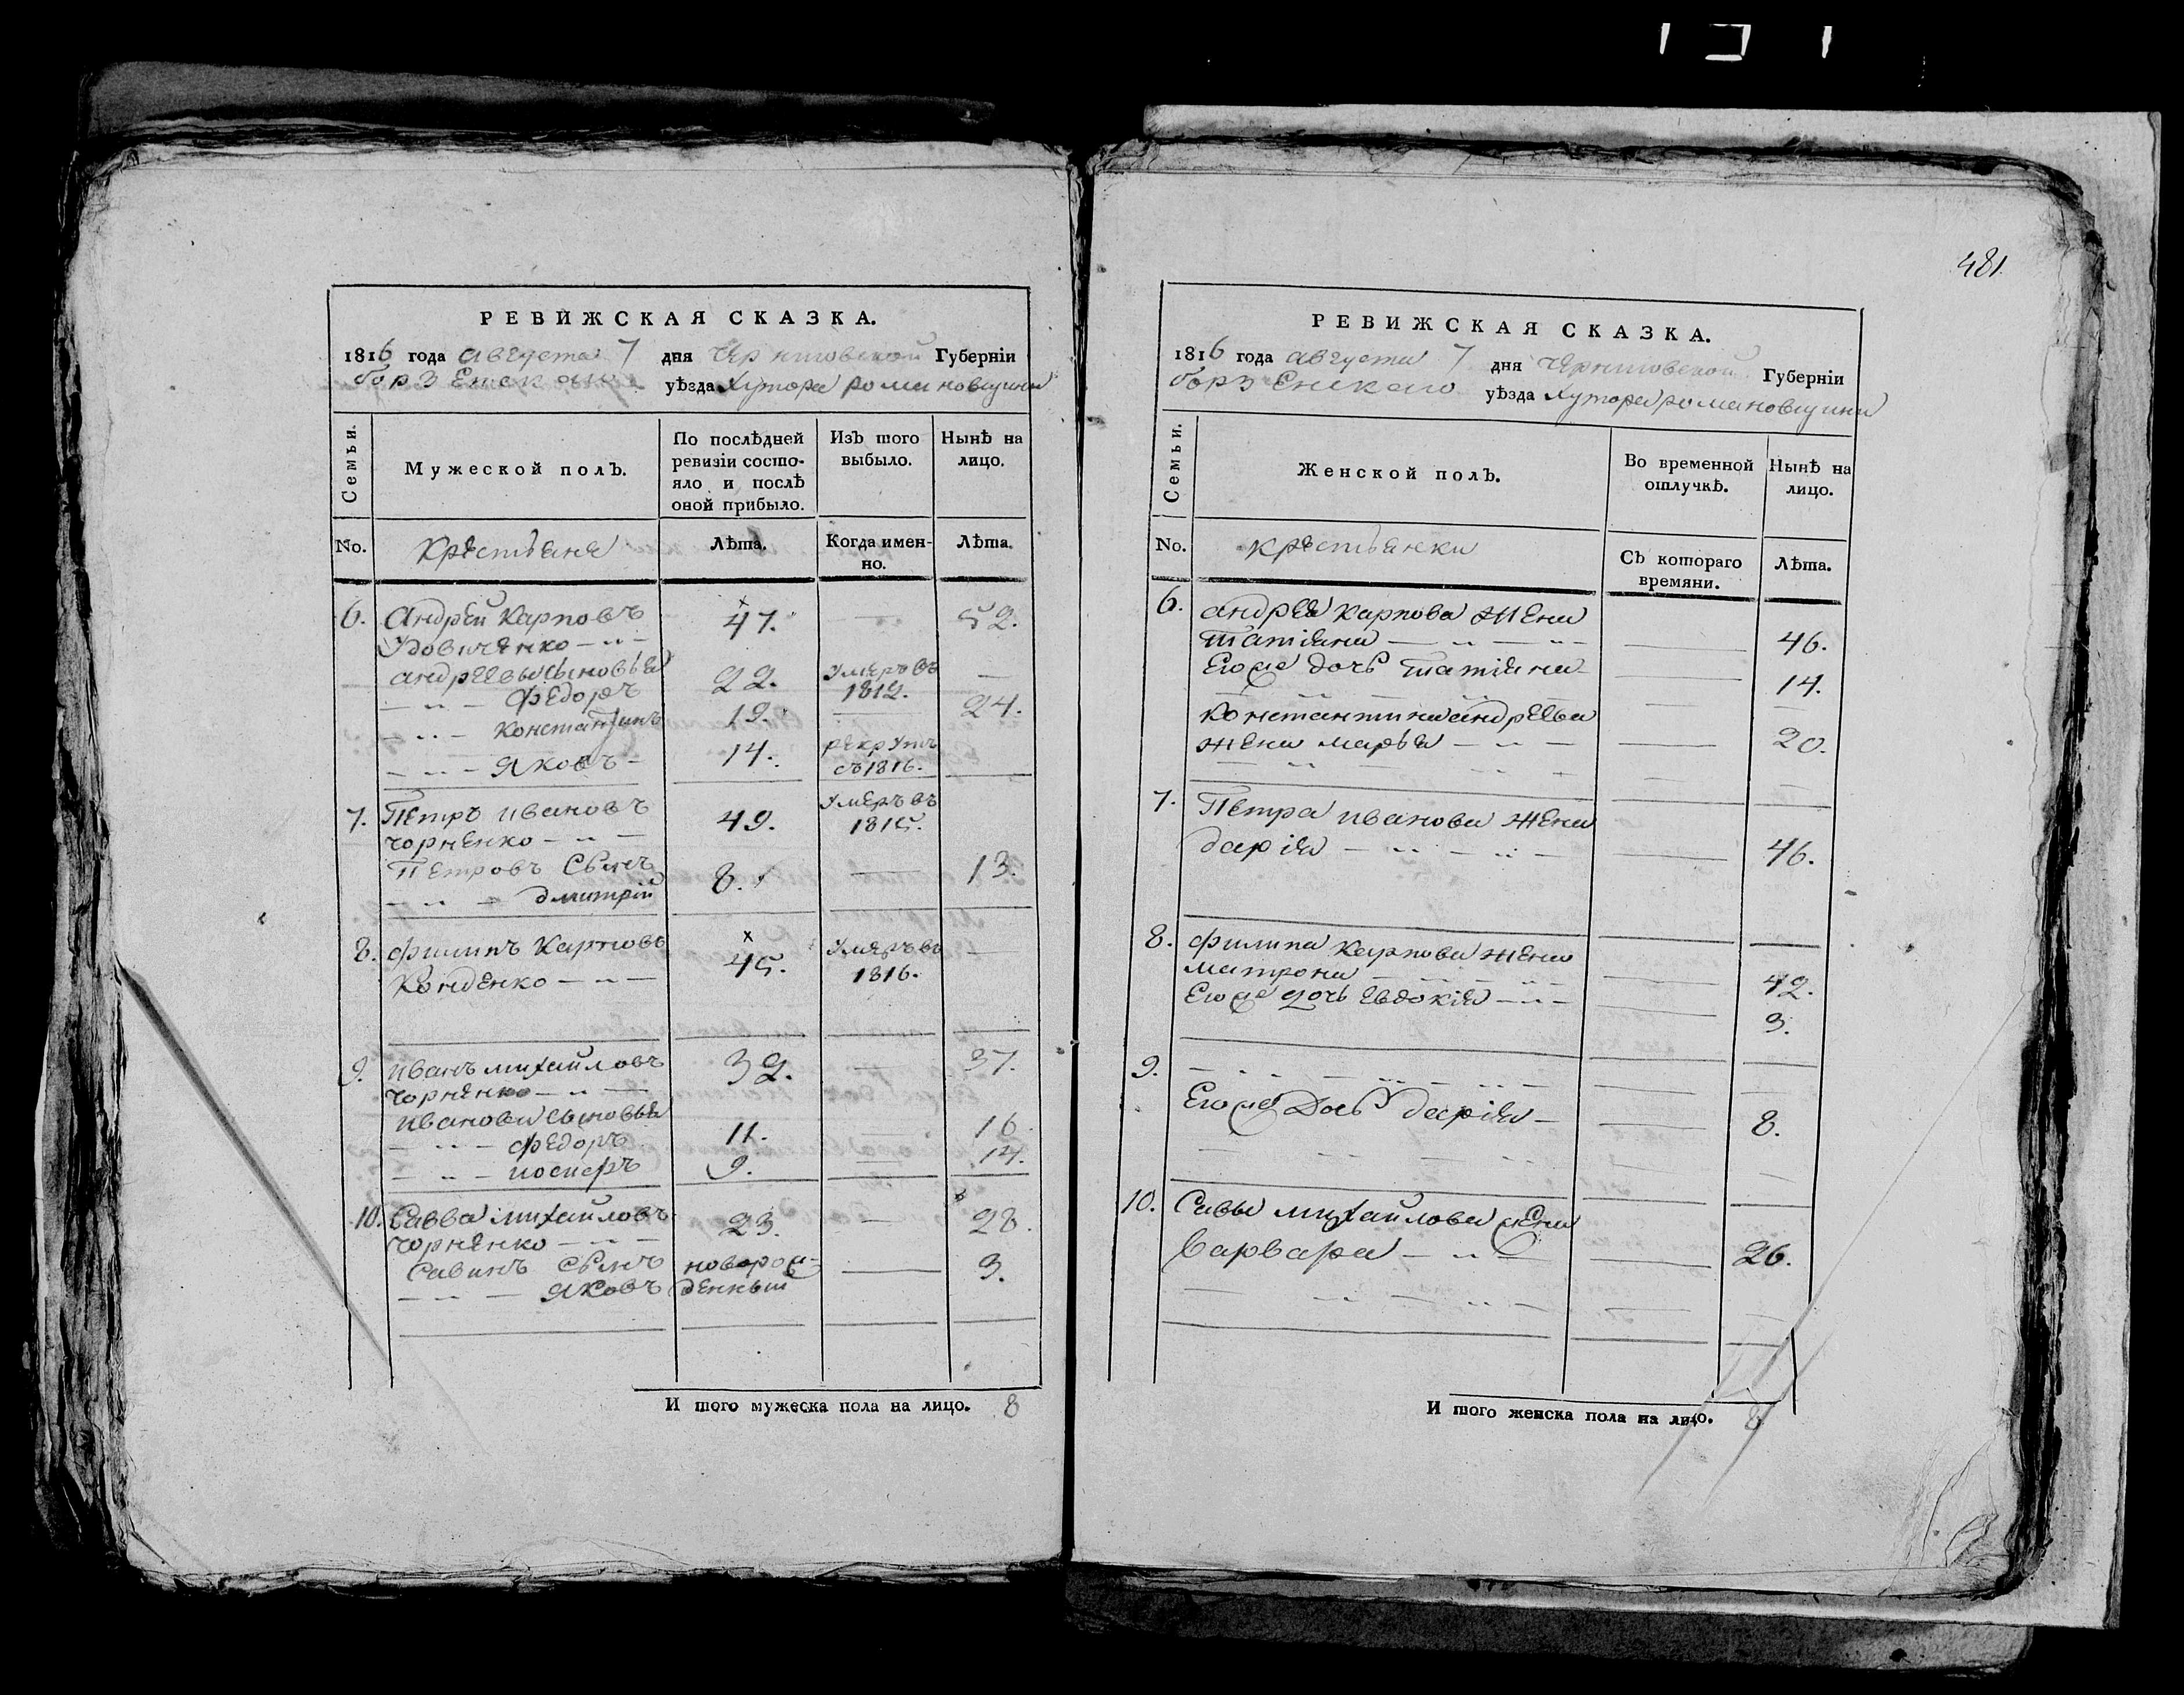 РЕВИЖСКАЯ СКАЗКА.
1816 года августа 7 дня Черниговской Губерніи
борзенскаго уѣзда хутора романовщини
Семьи.
Мужеской полЪ.
По послѣдней ревизіи состояло и послѣ оной прибыло.
ИзЪ того выбыло.
Нынѣ на лицо.
No.
крестьяне
Лѣта.
Когда именно.
Лѣта.
6. Андрей Карповъ 47. — 52.
Удовиченко
андреевы сыновья
Федоръ 22. умеръ въ 1812. —
Константинъ 19. — 24.
Яковъ 14. рекрутъ съ 1816.
7. Петръ ивановъ 49. умеръ въ 1815.
чорненко
Петровъ Сынъ
дмитрій 8. — 13.
8. филипъ Карповъ 45. умеръ въ 1816. —
Конденко
9. иванъ михайловъ 32. — 37.
чорненко
иванови сыновья
федоръ 11. 16
иосифъ 9. — 14.
10. Савва михайловъ 23. — 28.
чорненко
Савинъ Сынъ новорож- — 3.
Яковъ денный
И того мужеска пола на лицо. 8
481.
РЕВИЖСКАЯ СКАЗКА.
1816 года августа 7 дня Черниговской Губерніи
борзенскаго уѣзда хутора романовщини
Семьи.
Женской полЪ.
Во временной отлучкѣ.
Нынѣ на лицо.
No.
крестьянки
СЪ котораго времяни.
Лѣта.
6. андрея карпова жена
татіана — 46.
Его же дочь татіана — 14.
константина андреева
жена марья — 20.
7. Петра иванова жена
дарія — 46.
8. филипа карпова жена
матрона — 42.
Его же дочь евдокія — 3.
9.
Его же дочь дарія — 8.
10. Савы михайлова жена
варвара — 26.
И того женска пола на лицо. 8